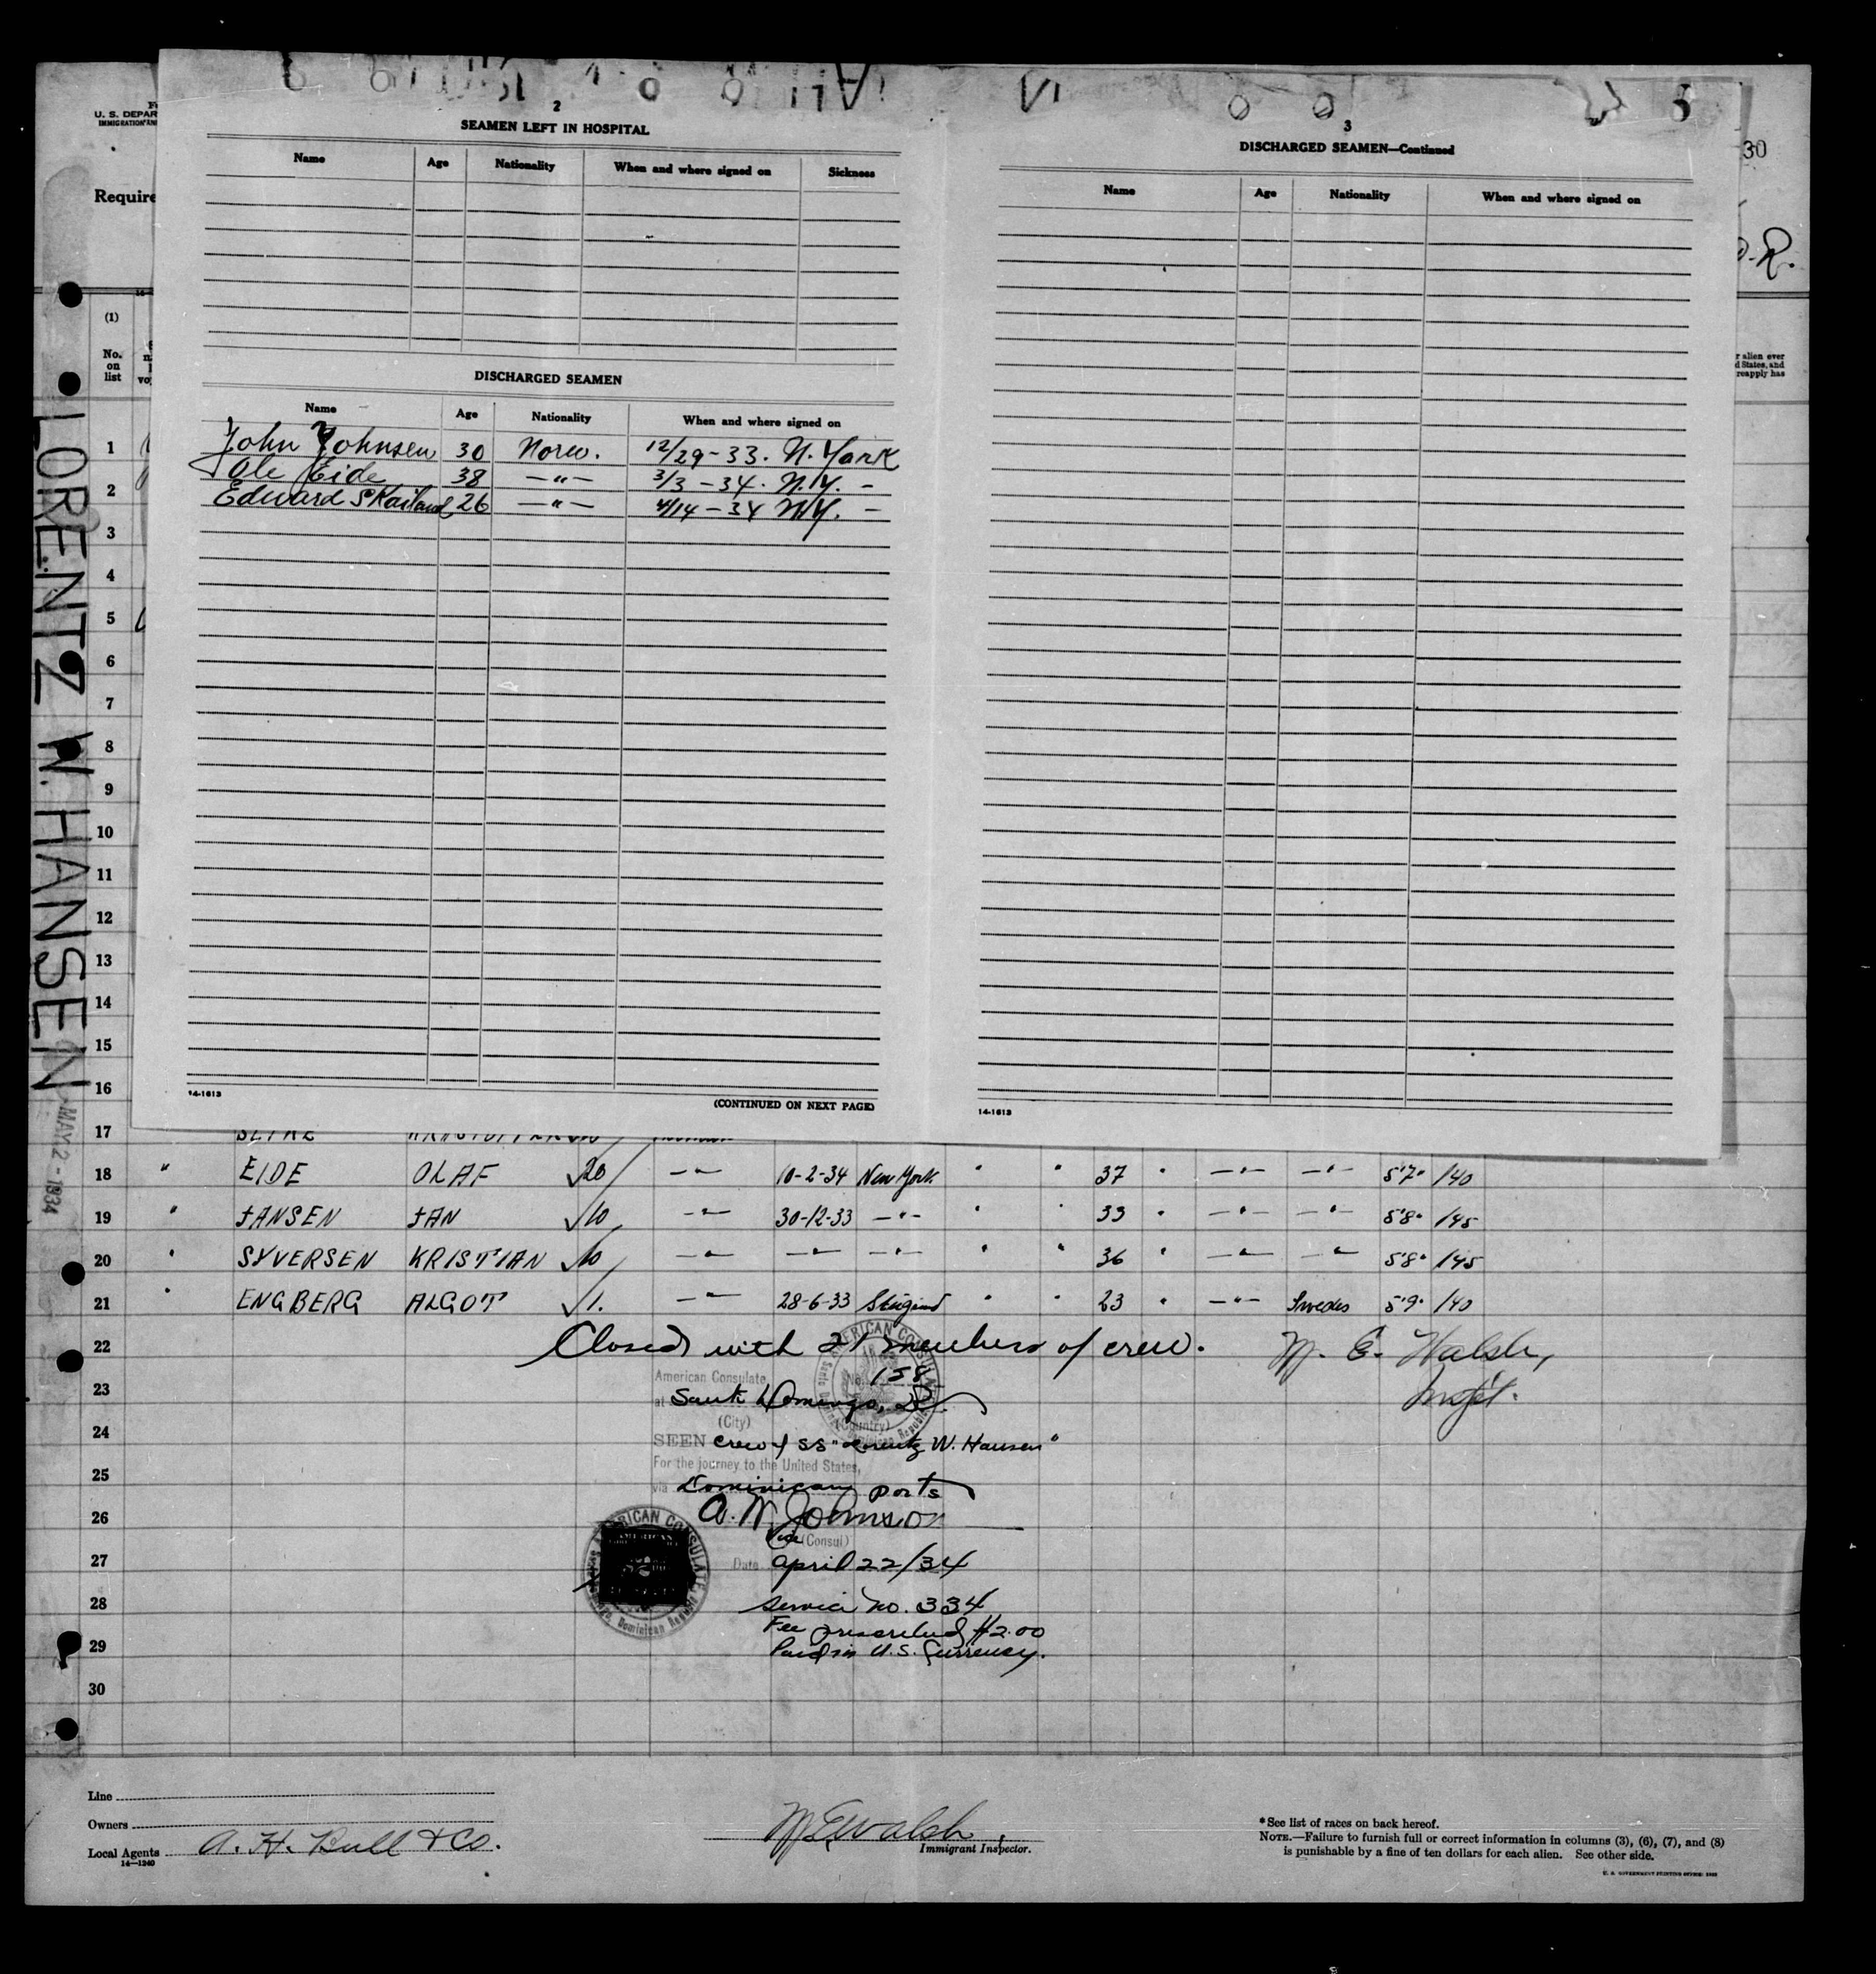 2
SEAMEN LEFT IN HOSPITAL
Name Age Nationality When and where signed on Sickness
DISCHARGED SEAMEN
Name Age Nationality When and where signed on
John Johnsen 30 Norw. 12/29-33. N. York
Ole Eide 38 —"— 3/3-34. N.Y. —
Edward 26 —"— 4/14-34 N.Y. —
14-1613
(CONTINUED ON NEXT PAGE)
3
DISCHARGED SEAMEN—Continued
Name Age Nationality When and where signed on
14-1613
U. S. DEPAR
IMMIGRATION AN
Require
30
(1)
No. on list
r alien ever
d States, and
reapply has
LORENTZ W. HANSEN
MAY 2 - 1934
1
2
3
4
5
6
7
8
9
10
11
12
13
14
15
16
17
18 " EIDE OLAF 20 —"— 10-2-34 New York " " 37 " —"— —"— 5'7" 140
19 " JANSEN JAN 10 —"— 30-12-33 —"— " " 39 " —"— —"— 5'8" 145
20 " SYVERSEN KRISTIAN 10 —"— —"— —"— " " 36 " —"— —"— 5'8" 145
21 " ENGBERG ALGOT 1. —"— 28-6-33 " " 23 " —"— Swedes 5'9" 140
22 Closed with 21 members of crew. M. E. Walsh,
Insp't.
23
24
25
26
27
28
29
30
American Consulate No. 158
at Santo Domingo, D.R.
(City) (Country)
SEEN crew of SS "Lorentz W. Hansen"
For the journey to the United States,
via Dominican ports
A. W. Johnson
Vice (Consul)
Date April 22/34
Service No. 334
Fee prescribed $2.00
Paid in U.S. Currency.
AMERICAN CONSULATE
Dominican Republic
Line
Owners
Local Agents A. H. Bull & Co.
14—1240
M E Walsh
Immigrant Inspector.
*See list of races on back hereof.
NOTE.—Failure to furnish full or correct information in columns (3), (6), (7), and (8)
is punishable by a fine of ten dollars for each alien. See other side.